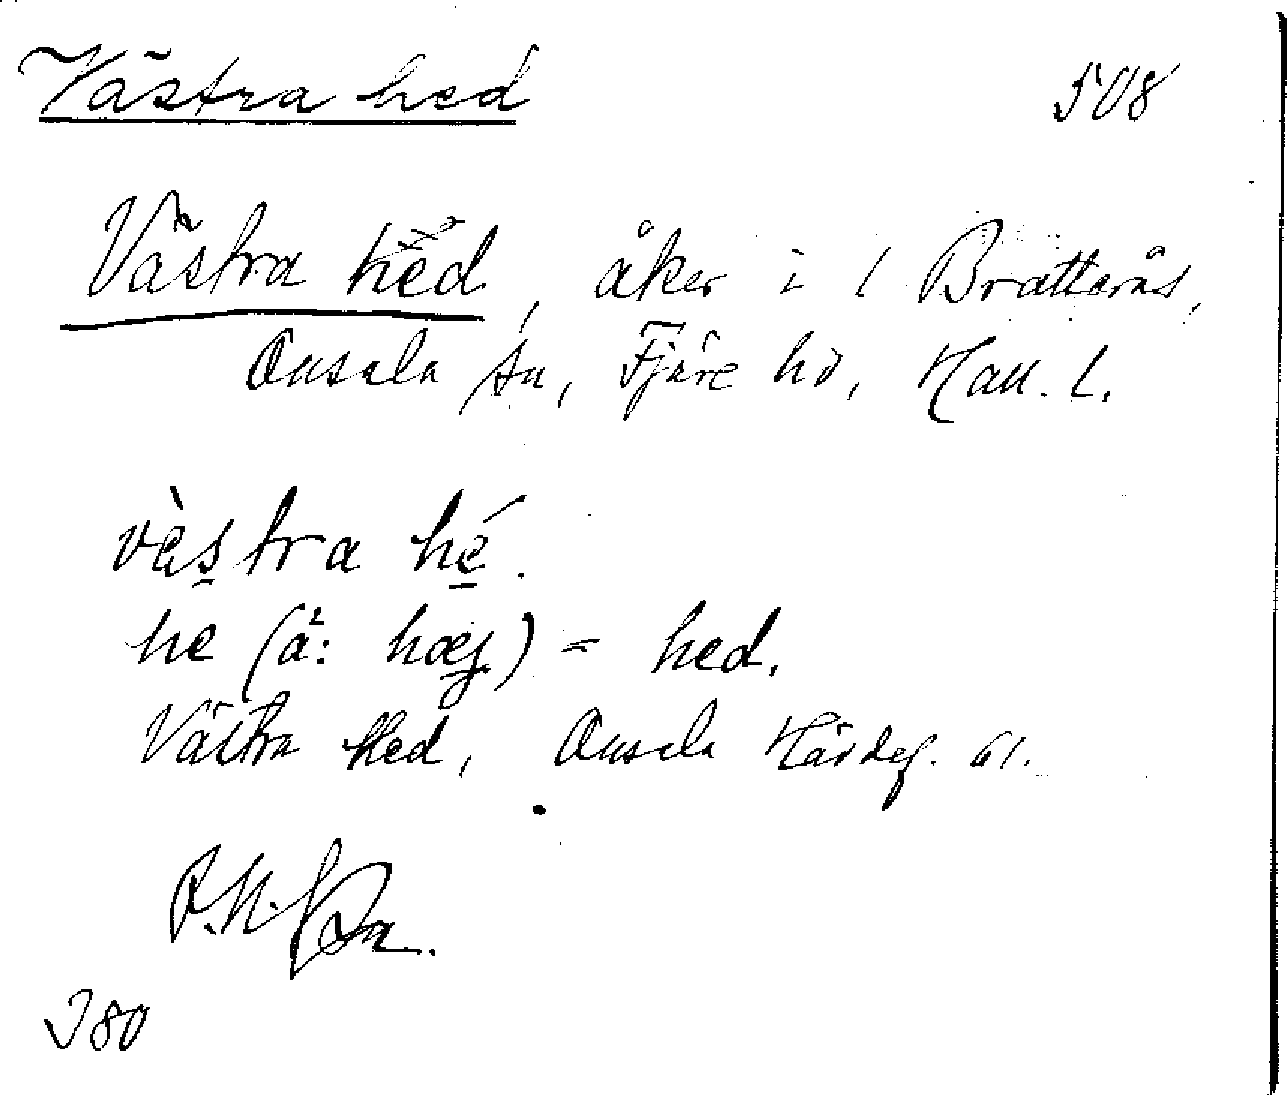 Västra hed 508
Västra hed, åker i 1 Bratterås,
Onsala sn, Fjäre hd, Hall. l.
vàstra hé.
he (ä: hæj) = hed.
Västra Hed, Onsala Hävdef. 61.
380